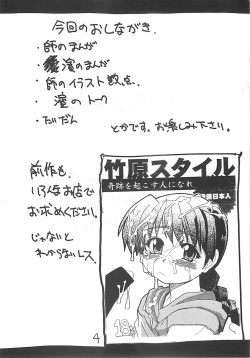 今回のおしながき
・師のまんが
・濱のまんが
・師のイラスト数点.
・濱のトーク
・だいだん
とかです。お楽しみ下さい。
前作も、
いろんなお店で
お求めください。
じゃないと
わからないしス
竹原スタイル
奇跡を起こす人になれ
日本人
18
4